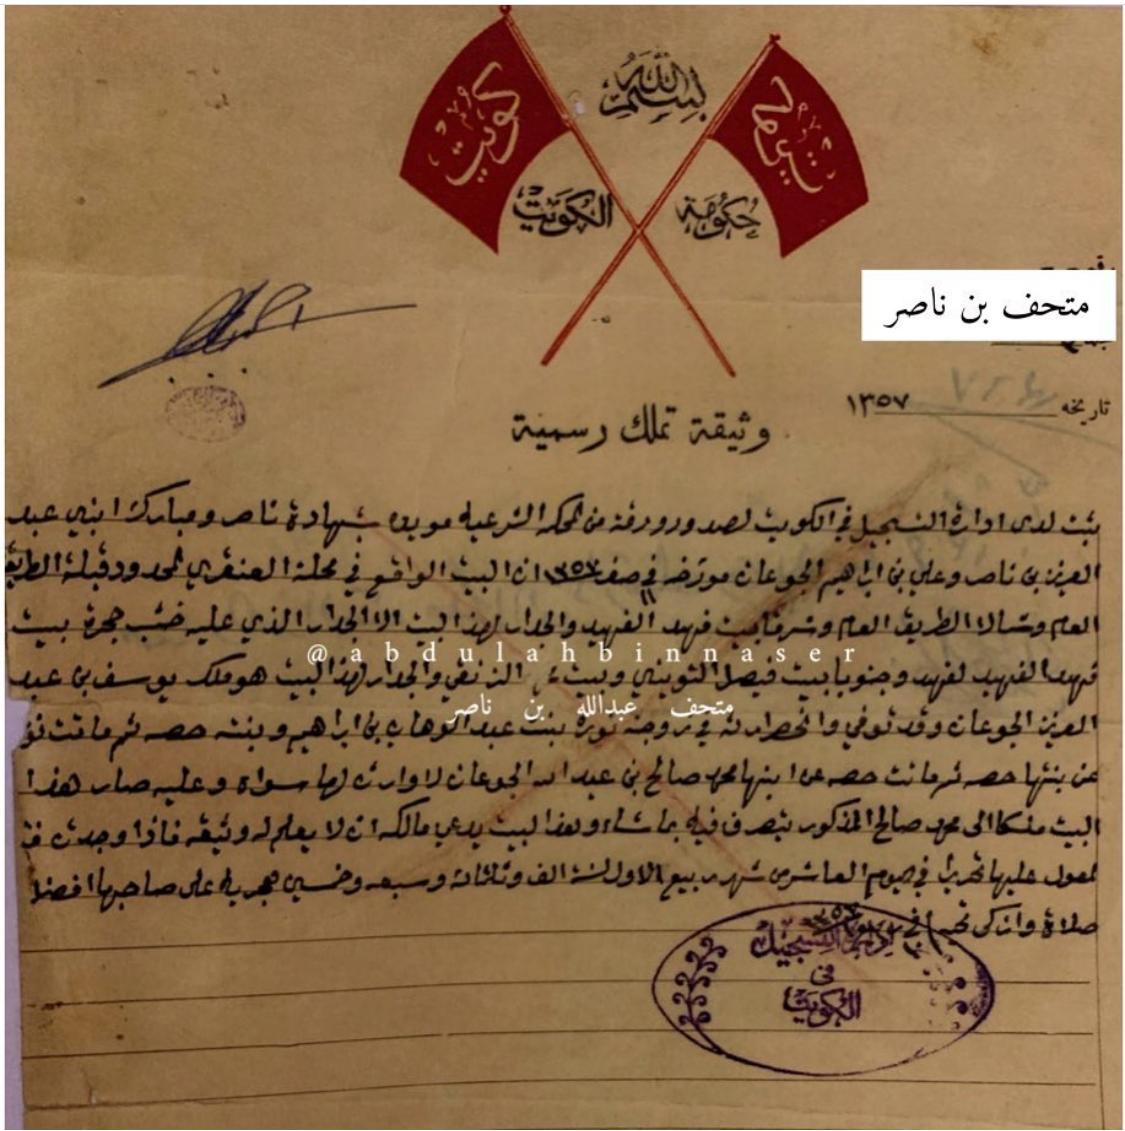 بسم الله
كويت
كويت
حكومة الكويت
متحف بن ناصر
تاريخه ١٣٥٧
وثيقة تملك رسمية
ثبت لدى ادارة التسجيل في الكويت لصدور ورقة من المحكمة الشرعية مويده بشهادة ناصر ومبارك ابني عبد
العزيز بن ناصر وعلي بن ابراهيم الجوعان مورخه في صفر ١٣٥٧ ان البيت الواقع في محلة العنقري المحدود قبلة الطريق
العام وشمالا الطريق العام وشرقا بيت فهد الفهيد والجدار لهذا البيت الا الجدار الذي عليه خشب حجرة بيت
@abdulahbinnaser
فهد الفهيد لفهد وجنوبا بيت فيصل الثويني وبيت الزنقي والجدار لهذا البيت هو ملك يوسف بن عبد
متحف عبدالله بن ناصر
العزيز الجوعان وقد توفي وانحصر ارثه في زوجته نورة بنت عبد الوهاب بن ابراهيم وبنته حصه ثم ماتت
عن بنتها حصه ثم ماتت حصه عن ابنها محمد صالح بن عبد الله الجوعان لا وارث لها سواه وعليه صار هذا
البيت ملكا الى محمد صالح المذكور يتصرف فيه بما شاء وهذا البيت يدعي مالكه ان لا يعلم له وثيقه فاذا وجدت
لمعول عليها تحريرا في يوم العاشر من شهر ربيع الاول لسنة الف وثلاثمائة وسبعه وخمسين هجرية على صاحبها افضل
صلاة وازكى تحية
ادارة التسجيل
في
الكويت